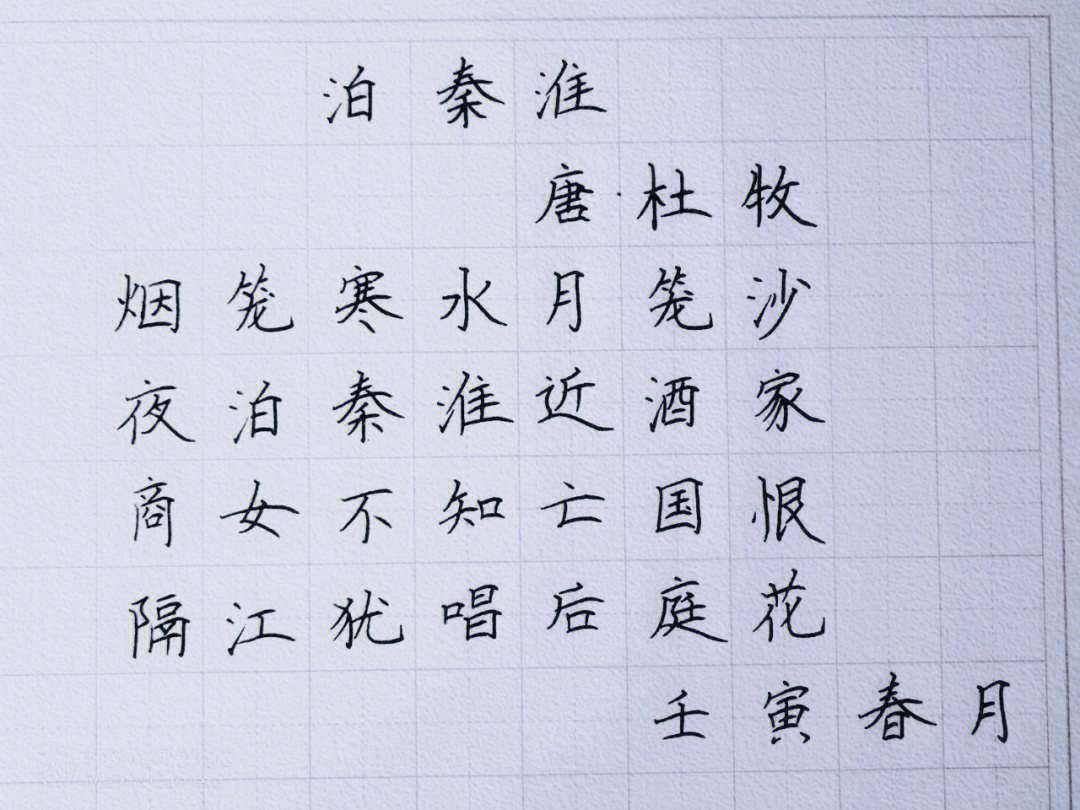 泊秦淮
唐·杜牧
烟笼寒水月笼沙
夜泊秦淮近酒家
商女不知亡国恨
隔江犹唱后庭花
壬寅春月